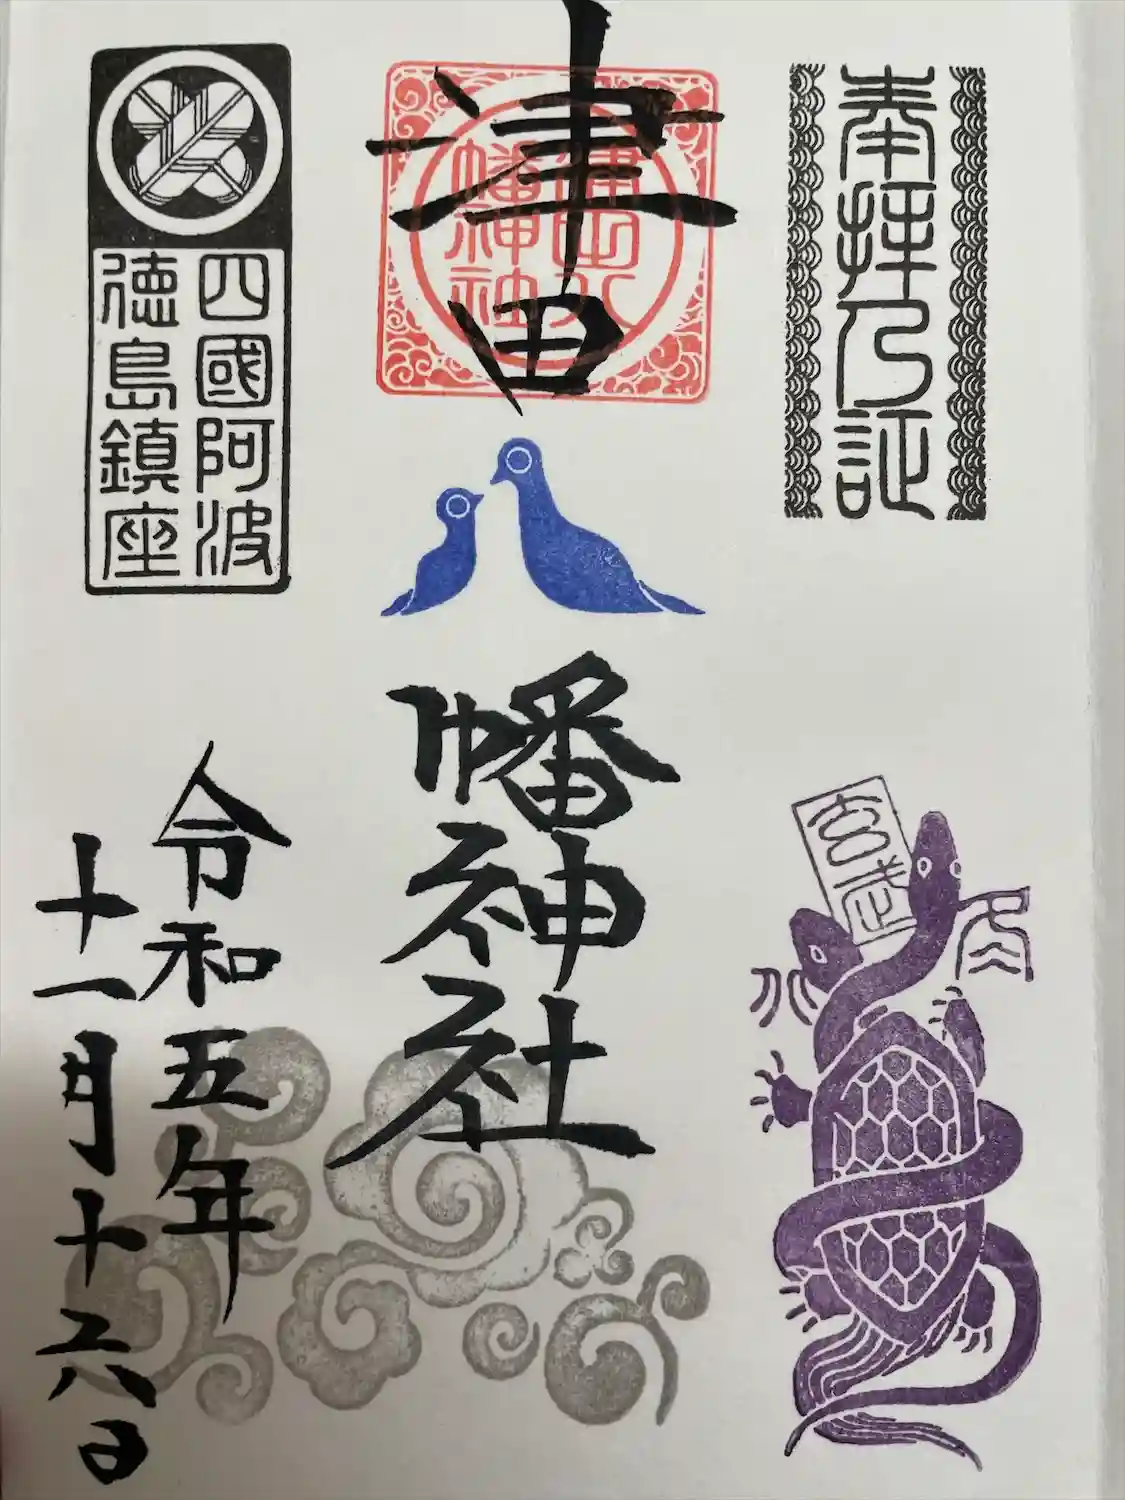 奉拝之証
玄武
水
津田
津田八
幡神社
幡神社
四國阿波
徳島鎮座
令和五年
十一月十六日